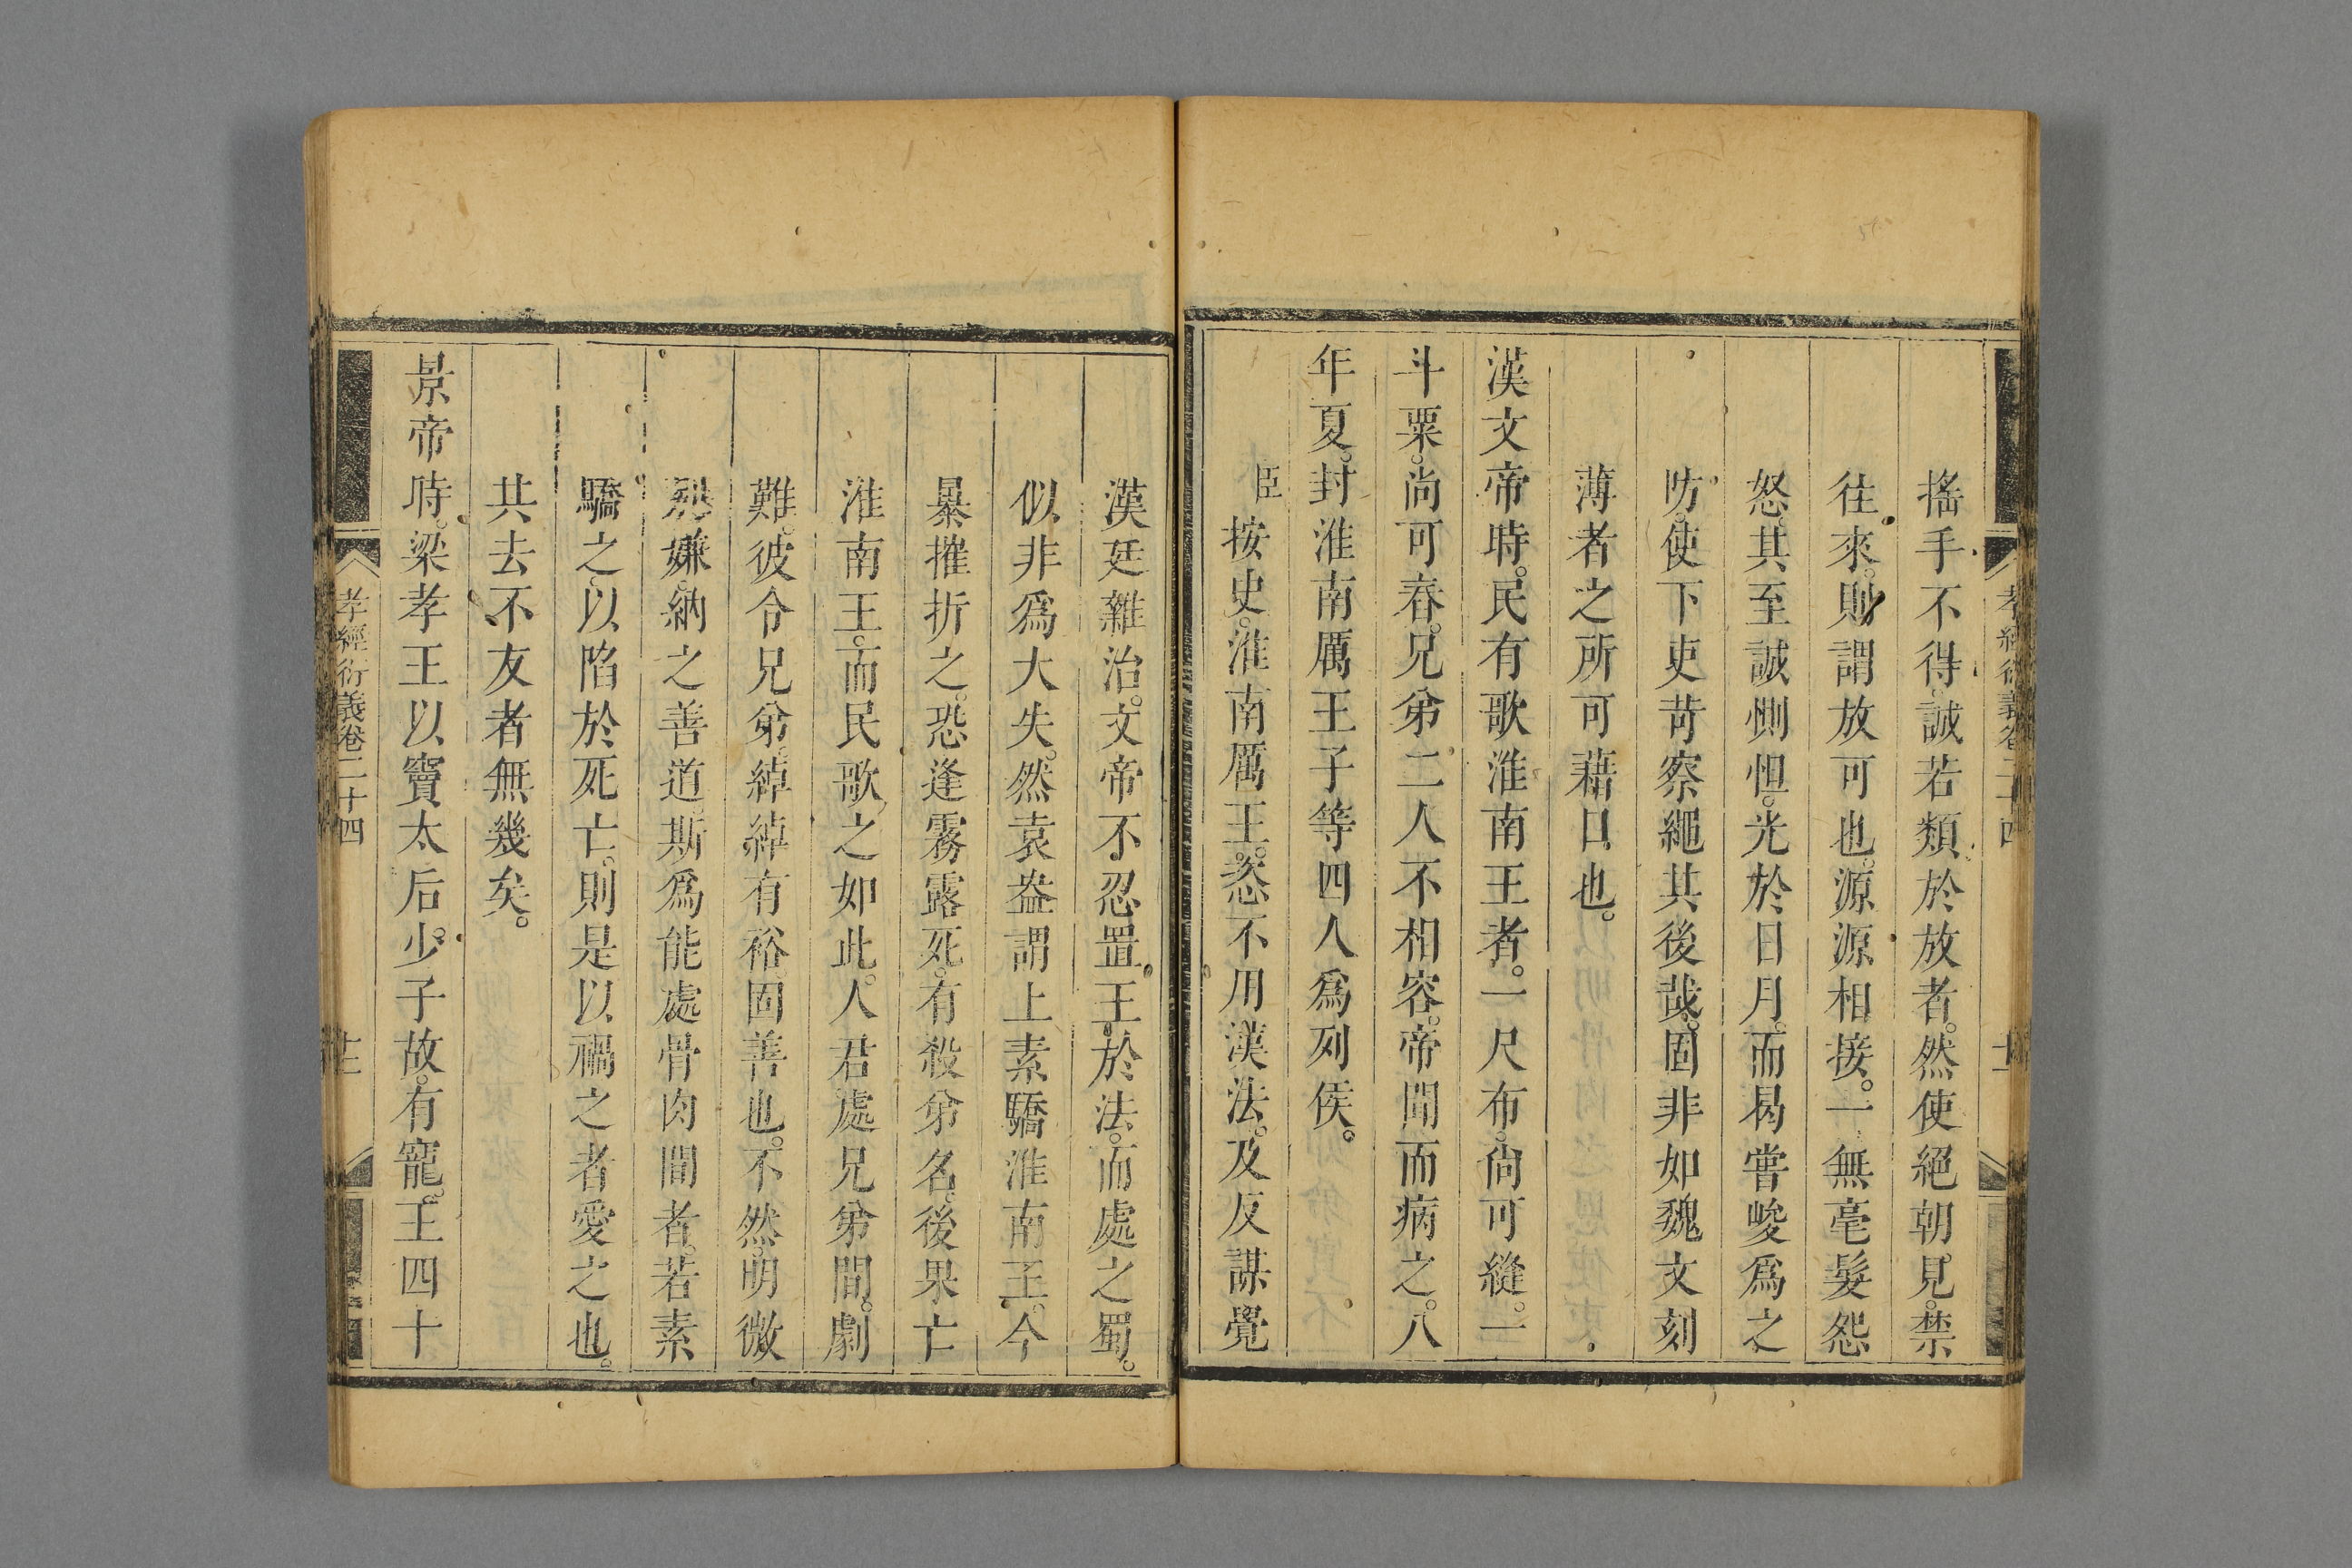 搖手不得誠若類於放者。然使絕朝見。禁
往來。則謂放可也。源源相接。一無毫髮怨
怒。其至誠惻怛。光於日月。而曷嘗峻爲之
防。使下吏苛察繩其後哉。固非如魏文刻
薄者之所可藉口也。
漢文帝時。民有歌淮南王者。一尺布。尙可縫。一
斗粟。尚可舂。兄弟二人不相容。帝聞而病之。八
年夏。封淮南厲王子等四人爲列侯。
臣按史。淮南厲王。恣不用漢法。及反謀覺
孝經衍義卷二十四
漢廷雜治。文帝不忍置王於法。而處之蜀。
似非爲大失。然袁盎謂上素驕淮南王。今
暴摧折之。恐逢霧露死。有殺弟名。後果亡
淮南王。而民歌之如此。人君處兄弟間。劇
難。彼令兄弟。綽綽有裕。固善也。不然。明微
嫌。納之善道。斯爲能處骨肉間者。若素
驕之。以陷於死亡。則是以禍之者愛之也。
其去不友者無幾矣。
景帝時。梁孝王以竇太后少子故。有寵。王四十
孝經衍義卷二十四